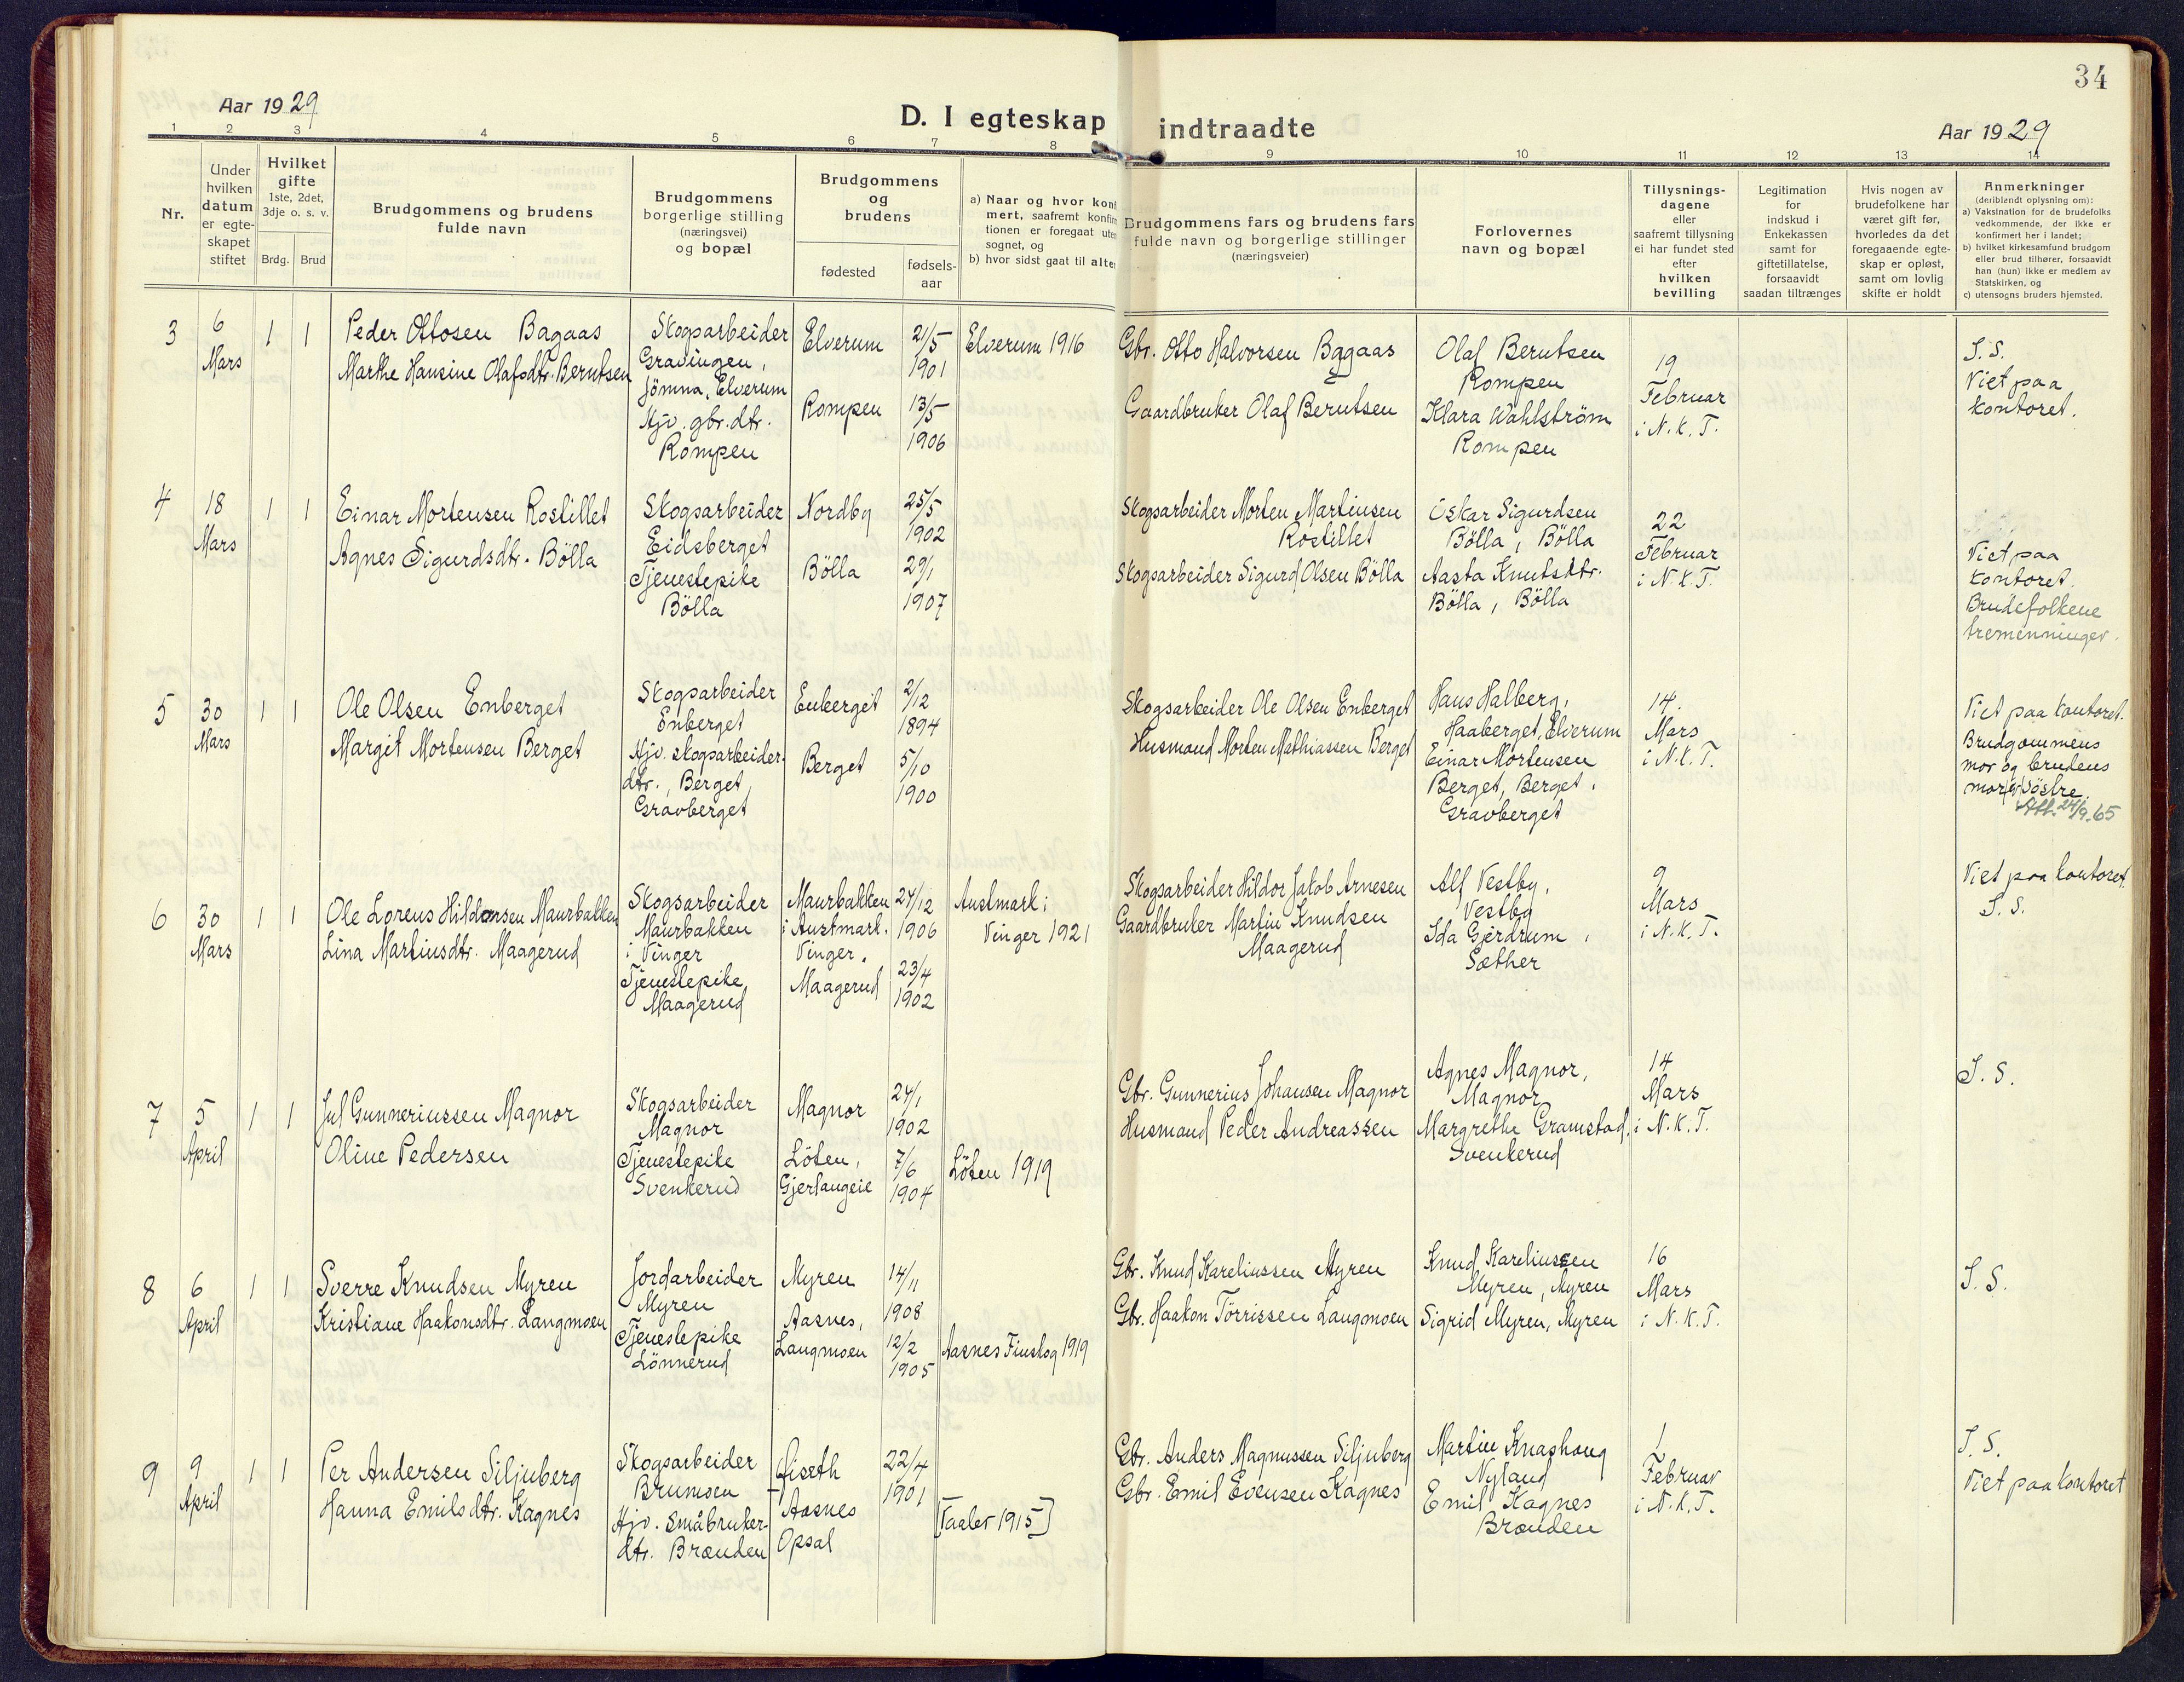 34
Aar 1929
D. I egteskap indtraadte
Aar 1929
1 2 3 4 5 6 7 8 9 10 11 12 13 14
Nr.
Under
hvilken
datum
er egte-
skapet
stiftet
Hvilket
gifte
1ste, 2det,
3dje o. s. v.
Brdg. Brud
Brudgommens og brudens
fulde navn
Brudgommens
borgerlige stilling
(næringsvei)
og bopæl
Brudgommens
og
brudens
fødested
fødsels-
aar
a) Naar og hvor konf
mert, saafremt konfir
tionen er foregaat uten
sognet, og
b) hvor sidst gaat til alter
Brudgommens fars og brudens fars
fulde navn og borgerlige stillinger
(næringsveier)
Forlovernes
navn og bopæl
Tillysnings-
dagene
eller
saafremt tillysning
ei har fundet sted
efter
hvilken
bevilling
Legitimation
for
indskud i
Enkekassen
samt for
giftetillatelse,
forsaavidt
saadan tiltrænges
Hvis nogen av
brudefolkene har
været gift før,
hvorledes da det
foregaaende egte-
skap er opløst,
samt om lovlig
skifte er holdt
Anmerkninger
(deriblendt oplysning om):
a) Vaksination for de brudefolks
vedkommende, der ikke er
konfirmert her i landet;
b) hvilket kirkesamfund brudgom
eller brud tilhører, forsaavidt
han (hun) ikke er medlem av
Statskirken, og
c) utensogns bruders hjemsted.
3
6
Mars
1 1
Peder Ottosen Bagaas
Marthe Hansine Olafsdtr. Berntsen
Skogsarbeider
Gravingen,
Jömna, Elverum
Hjv. gbr. dtr.
Rompen
Elverum
Rompen
21/5
1901
13/5
1906
Elverum 1916
Gbr. Otto Halvorsen Bagaas
Gaardbruker Olaf Berntsen
Olaf Berntsen
Rompen
Klara Wahlström
Rompen
19
Februar
i N. K. T.
S. S.
Viet paa
kontoret.
4
18
Mars
1 1
Einar Mortensen Rostillet
Agnes Sigurdsdtr. Bölla
Skogsarbeider
Eidsberget
Tjenestepike
Bölla
Nordby
Bölla
25/5
1902
29/1
1907
Skogsarbeider Morten Martinsen
Rostillet
Skogsarbeider Sigurd Olsen Bölla
Oskar Sigurdsen
Bölla, Bölla
Aasta Knutsdtr.
Bölla, Bölla
22
Februar
i N. K. T.
Viet paa
kontoret.
Brudefolkene
tremenninger.
5
30
Mars
1 1
Ole Olsen Enberget
Margit Mortensen Berget
Skogsarbeider
Enberget
Hjv. skogsarbeider-
dtr., Berget
Gravberget
Enberget
Berget
2/12
1894
5/10
1900
Skogsarbeider Ole Olsen Enberget
Husmand Morten Mathiassen Berget
Hans Halberg,
Haaberget, Elverum
Einar Mortensen
Berget, Berget.
Gravberget
14.
Mars
i N. K. T.
Viet paa kontoret.
Brudgommens
mor og brudens
mor er söstre.
Att. 24/9. 65
6
30
Mars
1 1
Ole Lorens Hildorsen Maurbakken
Lina Martinsdtr. Maagerud
Skogsarbeider
Maurbakken
i Vinger
Tjenestepike
Maagerud
Maurbakken
i Austmark.
Vinger.
Maagerud
24/12
1906
23/4
1902
Austmark i
Vinger 1921
Skogsarbeider Hildor Jakob Arnesen
Gaardbruker Martin Knudsen
Maagerud
Alf Vestby,
Vestby
Ida Gjerdrum,
Sæther
9
Mars
i N. K. T.
Viet paa kontoret.
S. S.
7
5
April
1 1
Jul Gunneriussen Magnor
Oline Pedersen
Skogsarbeider
Magnor
Tjenestepike
Svenkerud
Magnor
Löten,
Gjerlaugeie
24/1
1902
7/6
1904
Löten 1919
Gbr. Gunnerius Johansen Magnor
Husmand Peder Andreassen
Agnes Magnor,
Magnor
Margrethe Gramstad,
Svenkerud
14
Mars
i N. K. T.
S. S.
8
6
April
1 1
Sverre Knudsen Myren
Kristiane Haakonsdtr. Langmoen
Jordarbeider
Myren
Tjenestepike
Lönnerud
Myren
Aasnes,
Langmoen
14/11
1908
12/2
1905
Aasnes Finskog 1919
Gbr. Knud Kareliussen Myren
Gbr. Haakon Törrissen Langmoen
Knud Kareliussen
Myren, Myren
Sigrid Myren, Myren
16
Mars
i N. K. T.
S. S.
9
9
April
1 1
Per Andersen Siljuberg
Hanna Emilsdtr. Kagnes
Skogsarbeider
Brumoen
Hjv. småbruker-
dtr. Brænden
Aasnes
Opsal
22/4
1901
[Taaler 1915]
Gbr. Anders Magnussen Siljuberg
Gbr. Emil Evensen Kagnes
Martin Knashoug
Nyland
Emil Kagnes
Brænden
Februar
i N. K. T.
S. S.
Viet paa kontoret